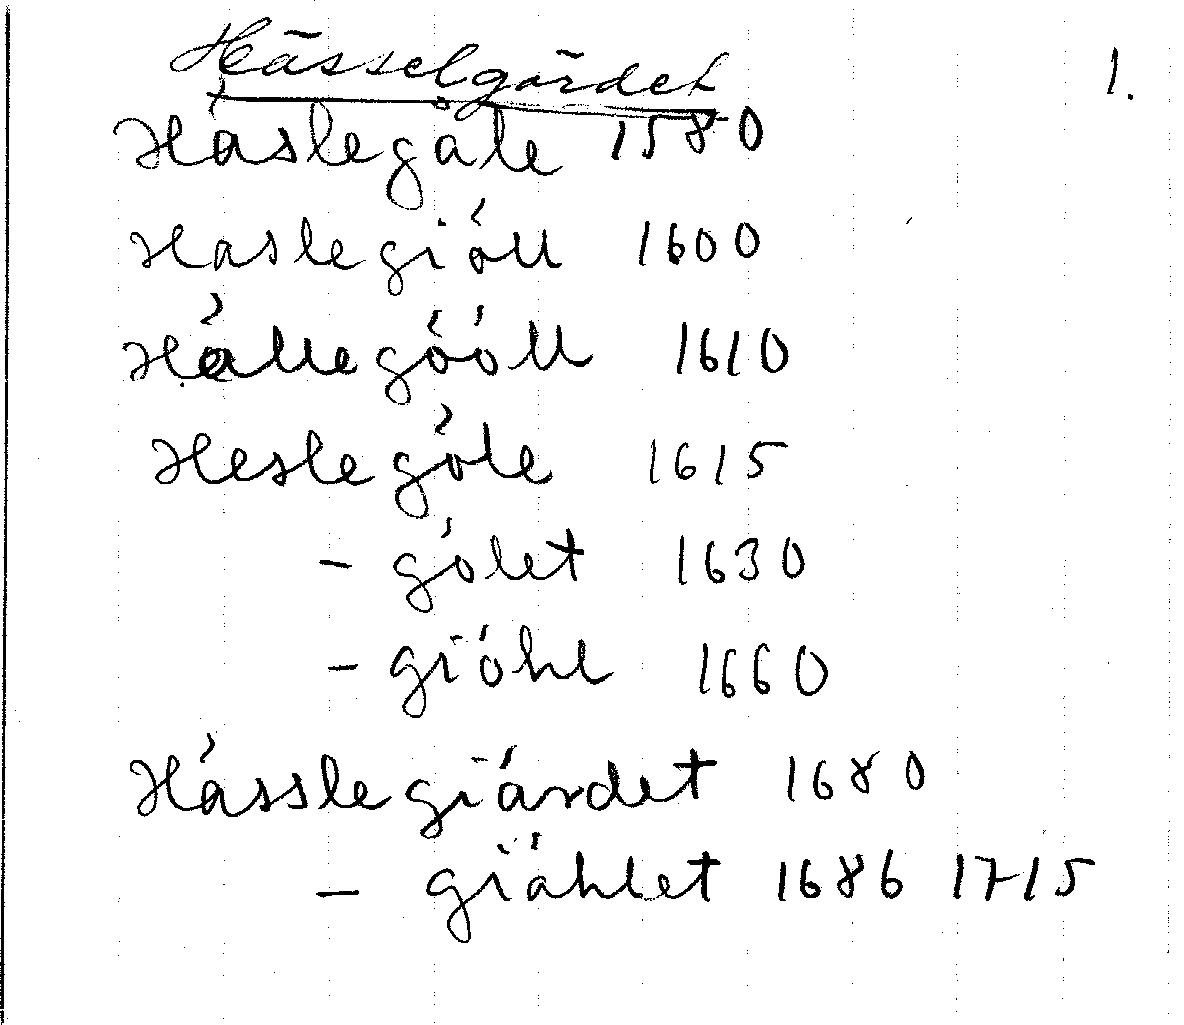 Hässelgärdet
1.
Háslegåle 1580
Haslegióll 1600
Hállegóóll 1610
Heslególe 1615
- gólet 1630
- gióhl 1660
Hásslegiárdet 1680
- giáhlet 1686 1715